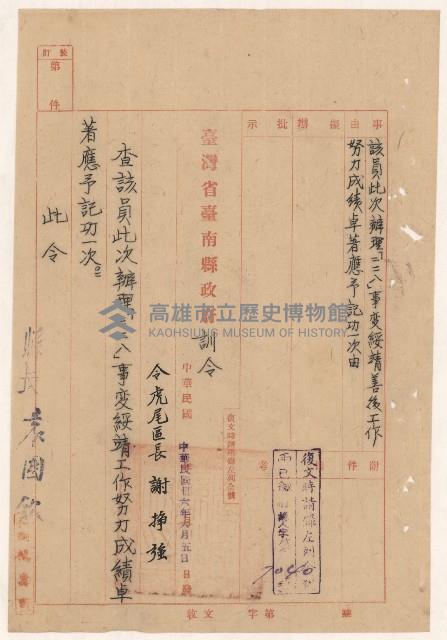 事由
擬辦
批示
該員此次辦理「二二八」事變綏靖善後工作
努力成績卓著應予記功一次由
附件
臺灣省臺南縣政府訓令
復文時請錄左列
7046
收文 字第 號
中華民國
中華民國卅六年 月五日
令虎尾區長 謝掙強
查該員此次辦理「二二八」事變綏靖工作努力成績卓
著應予記功一次。
此令
縣長 袁國欽
裝訂
第 件
高雄市立歷史博物館
KAOHSIUNG MUSEUM OF HISTORY